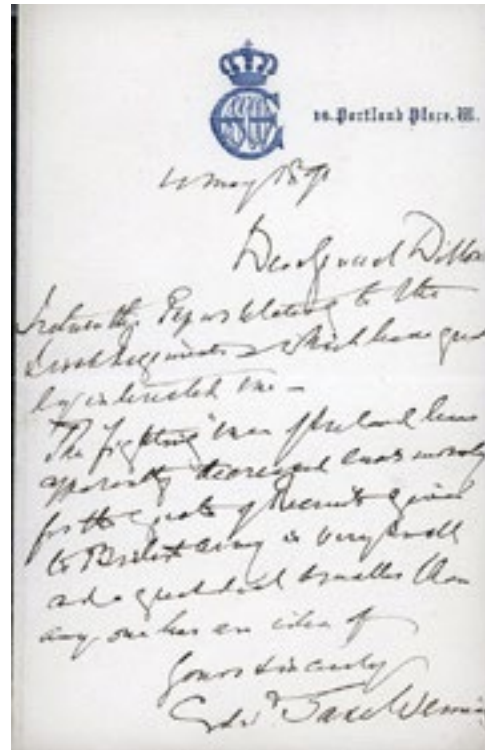 16. Portland Place. W.
11 May 1891
Dear General Dillon
I return the Papers relating to the
Irish Regiments which have great
ly interested me -
The fighting men of Ireland have
apparently decreased enormously
for the quota of Recruits given
to British army is very small
and a great deal smaller than
any one has an idea of
Yours sincerely
Saxe Weimar